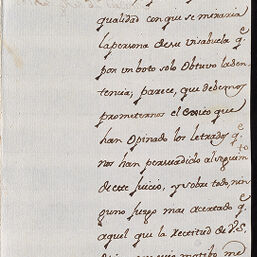 qualidad con qᵉ se
la persona de su visabuela qᵉ
por un boto solo Obtuvo la den
tencia; parece, que devemos
prometernos el exito que
han Opinado los letrados qᵉ
nos han persuadido al seguimᵗᵒ
de este juicio, y sobre todo, nin
guno juzgo mas acertado qᵉ
aquel que la rectitud de V.S.